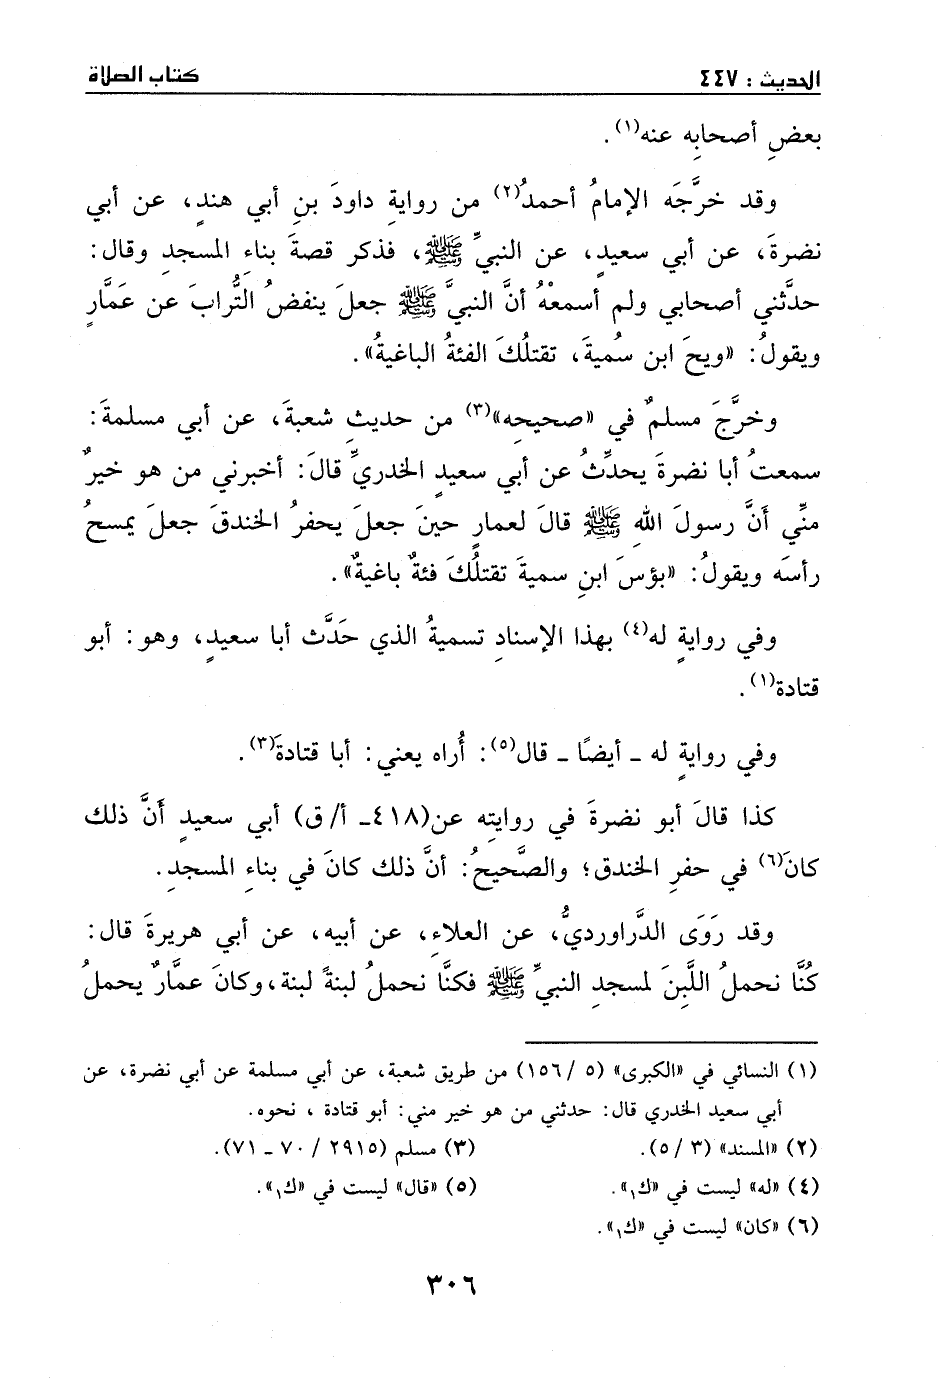 الحديث : ٤٤٧ كتاب الصلاة
بعضِ أصحابِه عنه(١) .
وقد خرَّجَه الإمامُ أحمدُ(٢) من روايةِ داودَ بنِ أبي هندٍ، عن أبي
نضرةَ، عن أبي سعيدٍ، عن النبيِّ ﷺ، فذكر قصةَ بناءِ المسجدِ وقال:
حدَّثني أصحابي ولم أسمعْهُ أنَّ النبيَّ ﷺ جعلَ ينفضُ التُّرابَ عن عَمَّارٍ
ويقولُ: «ويحَ ابن سُميةَ، تقتلُكَ الفئةُ الباغيةُ».
وخرَّجَ مسلمٌ في «صحيحِه»(٣) من حديثِ شعبةَ، عن أبي مسلمةَ:
سمعتُ أبا نضرةَ يحدِّثُ عن أبي سعيدٍ الخدريِّ قالَ: أخبرني من هو خيرٌ
منِّي أنَّ رسولَ اللهِ ﷺ قالَ لعمارٍ حينَ جعلَ يحفرُ الخندقَ جعلَ يمسحُ
رأسَه ويقولُ: «بؤسَ ابنِ سميةَ تقتلُكَ فئةٌ باغيةٌ».
وفي روايةٍ له(٤) بهذا الإسنادِ تسميةُ الذي حَدَّث أبا سعيدٍ، وهو: أبو
قتادة(١) .
وفي روايةٍ له ـ أيضًا ـ قال(٥): أُراه يعني: أبا قتادةَ(٣) .
كذا قالَ أبو نضرةَ في روايتِه عن(٤١٨ـ أ/ ق) أبي سعيدٍ أنَّ ذلك
كانَ(٦) في حفرِ الخندقِ؛ والصَّحيحُ: أنَّ ذلك كانَ في بناءِ المسجدِ.
وقد رَوَى الدَّراورديُّ، عن العلاءِ، عن أبيه، عن أبي هريرةَ قال:
كُنَّا نحملُ اللَّبِنَ لمسجدِ النبيِّ ﷺ فكنَّا نحملُ لبنةً لبنة، وكانَ عمَّارٌ يحملُ
(١) النسائي في «الكبرى» (٥ /١٥٦) من طريق شعبة، عن أبي مسلمة عن أبي نضرة، عن
أبي سعيد الخدري قال: حدثني من هو خير مني: أبو قتادة ، نحوه.
(٢) «المسند» (٣ /٥). (٣) مسلم (٢٩١٥ / ٧٠ ـ ٧١).
(٤) «له» ليست في «ك١». (٥) «قال» ليست في «ك١».
(٦) «كان» ليست في «ك١».
٣٠٦